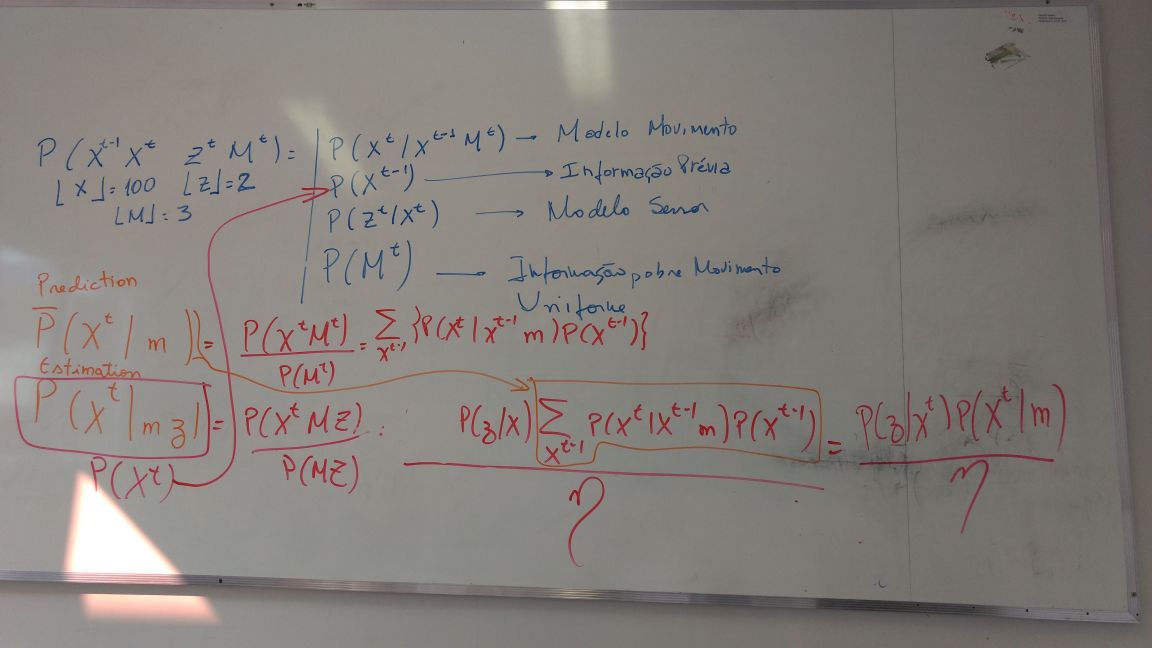 P(X^{t-1} X^t Z^t M^t) =
⌊X⌋=100 ⌊Z⌋=2
⌊M⌋=3
P(X^t/X^{t-1} M^t) → Modelo Movimento
P(X^{t-1}) → Informação Prévia
P(Z^t/X^t) → Modelo Sensor
P(M^t) → Informação pobre Movimento
Uniforme
Prediction
P̅(X^t | m) = P(X^t M^t) / P(M^t) = Σ_{X^{t-1}} {P(X^t | X^{t-1} m) P(X^{t-1})}
Estimation
P(X^t | m z) = P(X^t M Z) / P(MZ) : P(z/X) Σ_{X^{t-1}} P(X^t | X^{t-1} m) P(X^{t-1}) / η = P(z|X^t) P(X^t | m) / η
P(X^t)